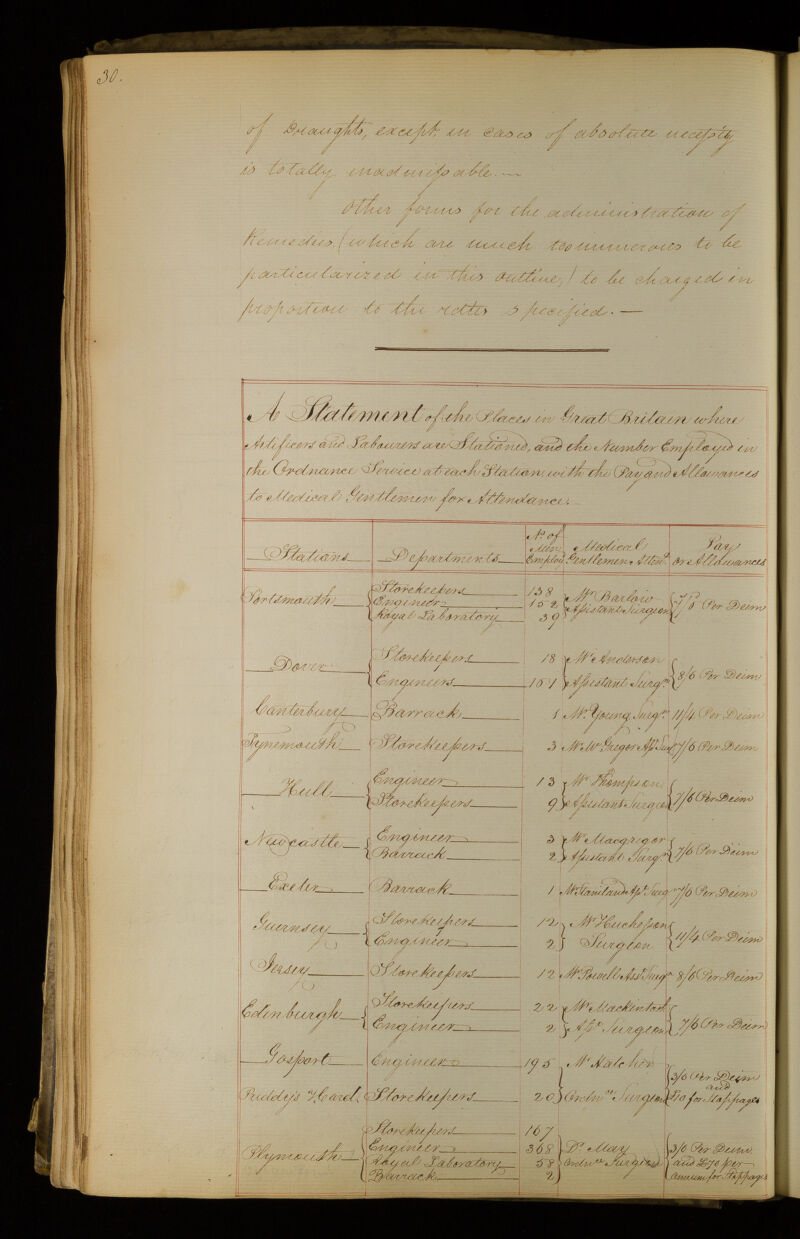 30.
of Draughts, except in cases of absolute necessity
is totally inadmissable. —
Other forms for the administration of
Remedies, (which are much too numerous to be
particularized in this outline,) to be charged in
proportion to the rates specified. —
A Statement of the Places in Great Britain where
Artificers and Labourers are Stationed, and the Number Employed in
the Ordnance Service at each Station with the Pay and Allowances
to Medical Gentlemen for Attendance. —
Stations Departments No. of Men Employd Medical Gentlemen Attend.g Pay or Allowances
Portsmouth Storekeepers 138 Mr Barlow Assistant Surgeon 7/6 Per Deim
Engineers 152
Royal Laboratory 39
Dover Storekeepers 18 Mr Anderson 8/6 Per Deim
Engineers 151 Assistant Surgn
Canterbury Barrack 1 Mr Young Surgn 11/4 Per Deim
Tynemouth Storekeepers 3 Mr McGregor Asst Sur 7/6 Per Deim
Hull Engineers 13 Mr Thompson 7/6 Per Deim
Storekeepers 9 Assistant Surgn
Newcastle Engineers 3 Mr Macgregor 7/6 Per Deim
Barrack 2 Assistant Surgn
Exeter Barrack 1 Mr Asst Surgn 7/6 Per Deim
Guernsey Storekeepers 12 Mr 11/4 Per Deim
Engineers 2 Surgeon
Jersey Storekeepers 12 Mr Powell Asst Surgn 8/6 Per Deim
Edinburgh Storekeepers 22 Mr Mackintosh 7/6 Per Deim
Engineers 2 Asst Surgeon
Gosport Engineers 195 Mr Hatcher 3/0 Per Deim
and
Priddy's Hard Storekeepers 20 Ordne Surgeon for Stoppages
Plymouth Storekeepers 167
Engineers 368 Dr May 3/0 Per Deim
Royal Laboratory 58 Ordne Surgeon and £70 per
Barrack 2 Annum for Stoppages